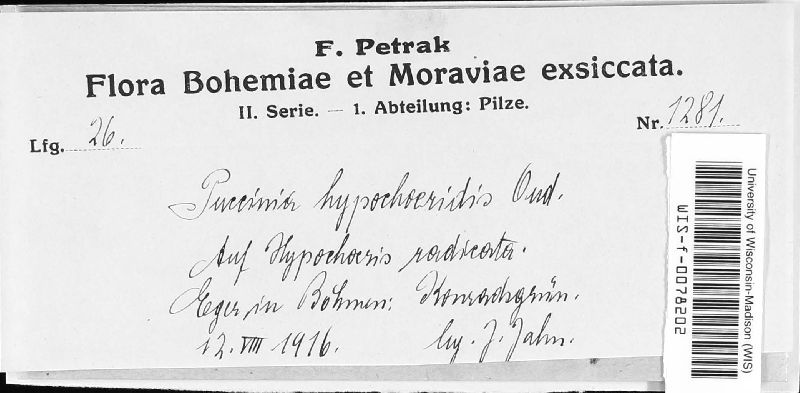 F. Petrak
Flora Bohemiae et Moraviae exsiccata.
II. Serie. — 1. Abteilung: Pilze.
Lfg. 26.
Nr. 1281.
Puccinia hypochoeridis Oud.
Auf Hypochoeris radicata.
Eger in Böhmen: Konradsgrün.
12. VIII 1916.
leg. J. Jahn.
University of Wisconsin-Madison (WIS)
WIS-f-0078202